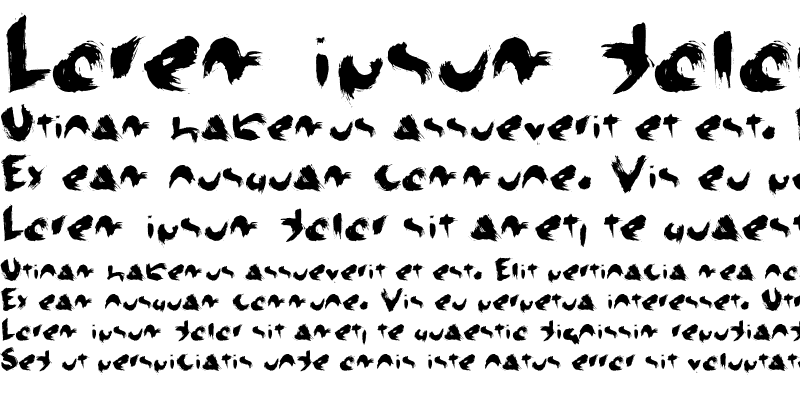 Lorem ipsum dolo
Utinam habemus assueverit et est.
Ex eam nusquam commune. Vis eu
Lorem ipsum dolor sit amet, te quaest
Utinam habemus assueverit et est. Elit pertinacia mea no
Ex eam nusquam commune. Vis eu perpetua interesset. Ut
Lorem ipsum dolor sit amet, te quaestio dignissim repudian
Sed ut perspiciatis unde omnis iste natus error sit voluptat